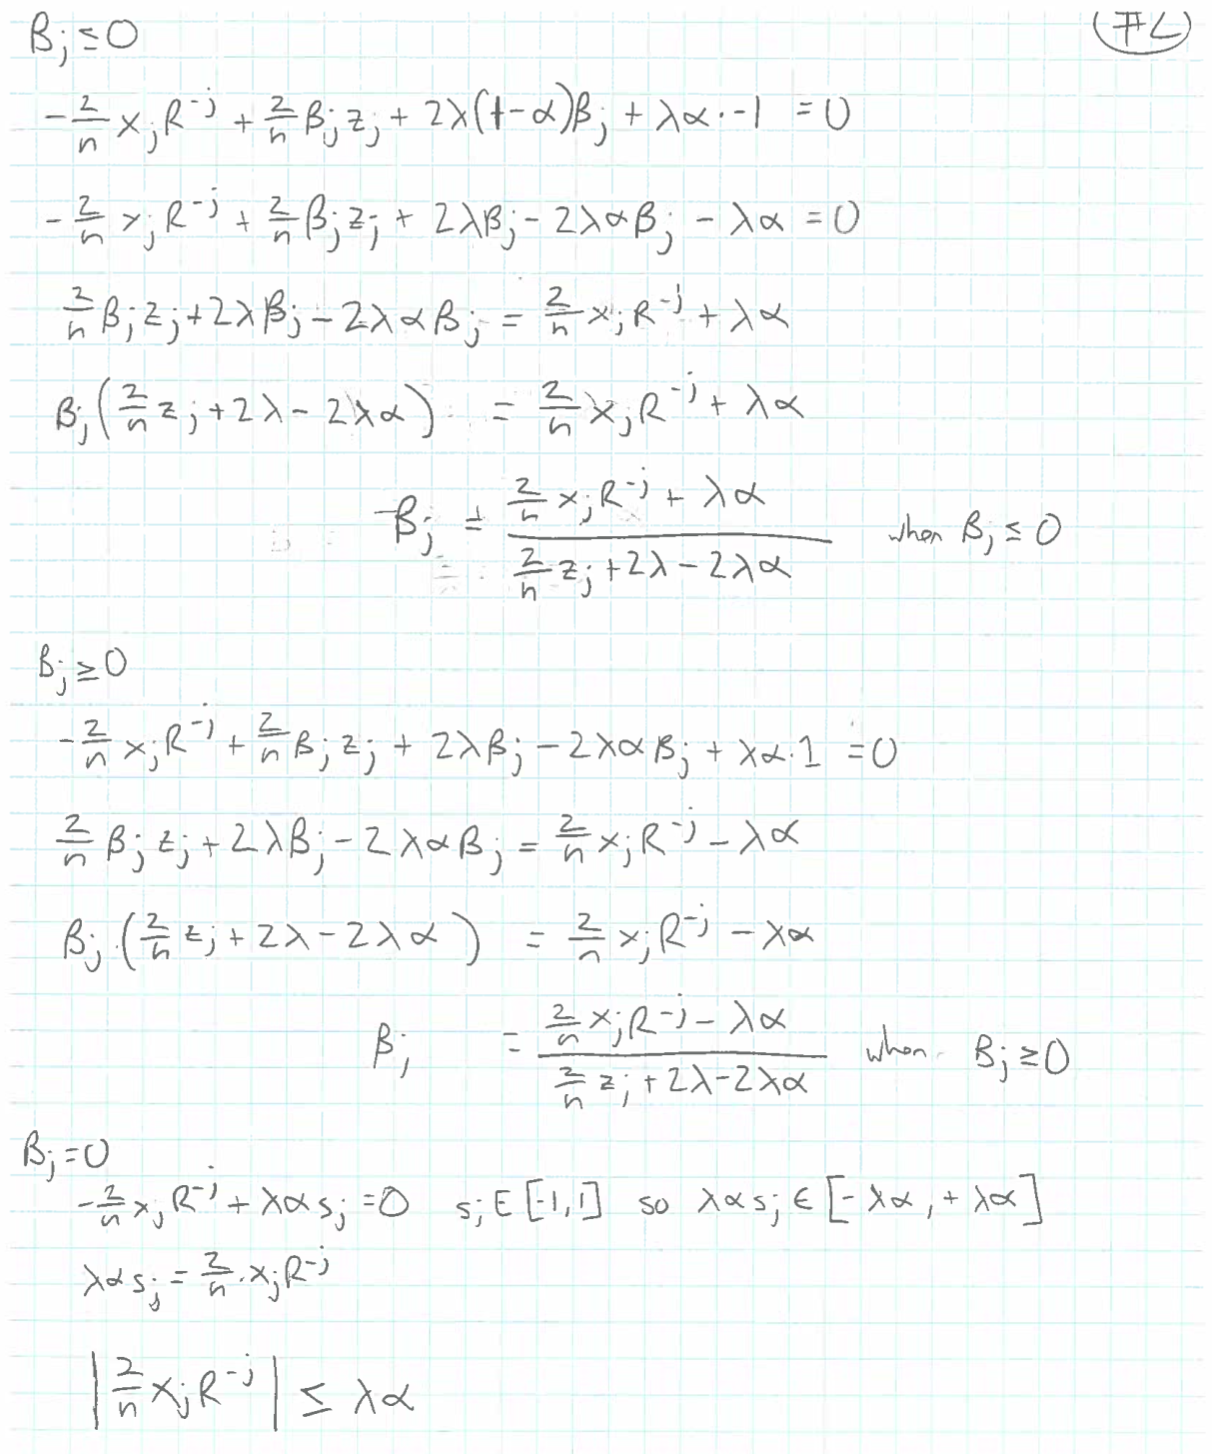 #2
β_j ≤ 0
-2/n x_j R^-j + 2/n β_j z_j + 2λ(1-α)β_j + λα·-1 = 0
-2/n x_j R^-j + 2/n β_j z_j + 2λβ_j - 2λαβ_j - λα = 0
2/n β_j z_j + 2λβ_j - 2λαβ_j = 2/n x_j R^-j + λα
β_j (2/n z_j + 2λ - 2λα) = 2/n x_j R^-j + λα
β_j = (2/n x_j R^-j + λα) / (2/n z_j + 2λ - 2λα) when β_j ≤ 0
β_j ≥ 0
-2/n x_j R^-j + 2/n β_j z_j + 2λβ_j - 2λαβ_j + λα·1 = 0
2/n β_j z_j + 2λβ_j - 2λαβ_j = 2/n x_j R^-j - λα
β_j (2/n z_j + 2λ - 2λα) = 2/n x_j R^-j - λα
β_j = (2/n x_j R^-j - λα) / (2/n z_j + 2λ - 2λα) when β_j ≥ 0
β_j = 0
-2/n x_j R^-j + λα s_j = 0 s_j ∈ [-1,1] so λα s_j ∈ [-λα, +λα]
λα s_j = 2/n · x_j R^-j
|2/n x_j R^-j| ≤ λα